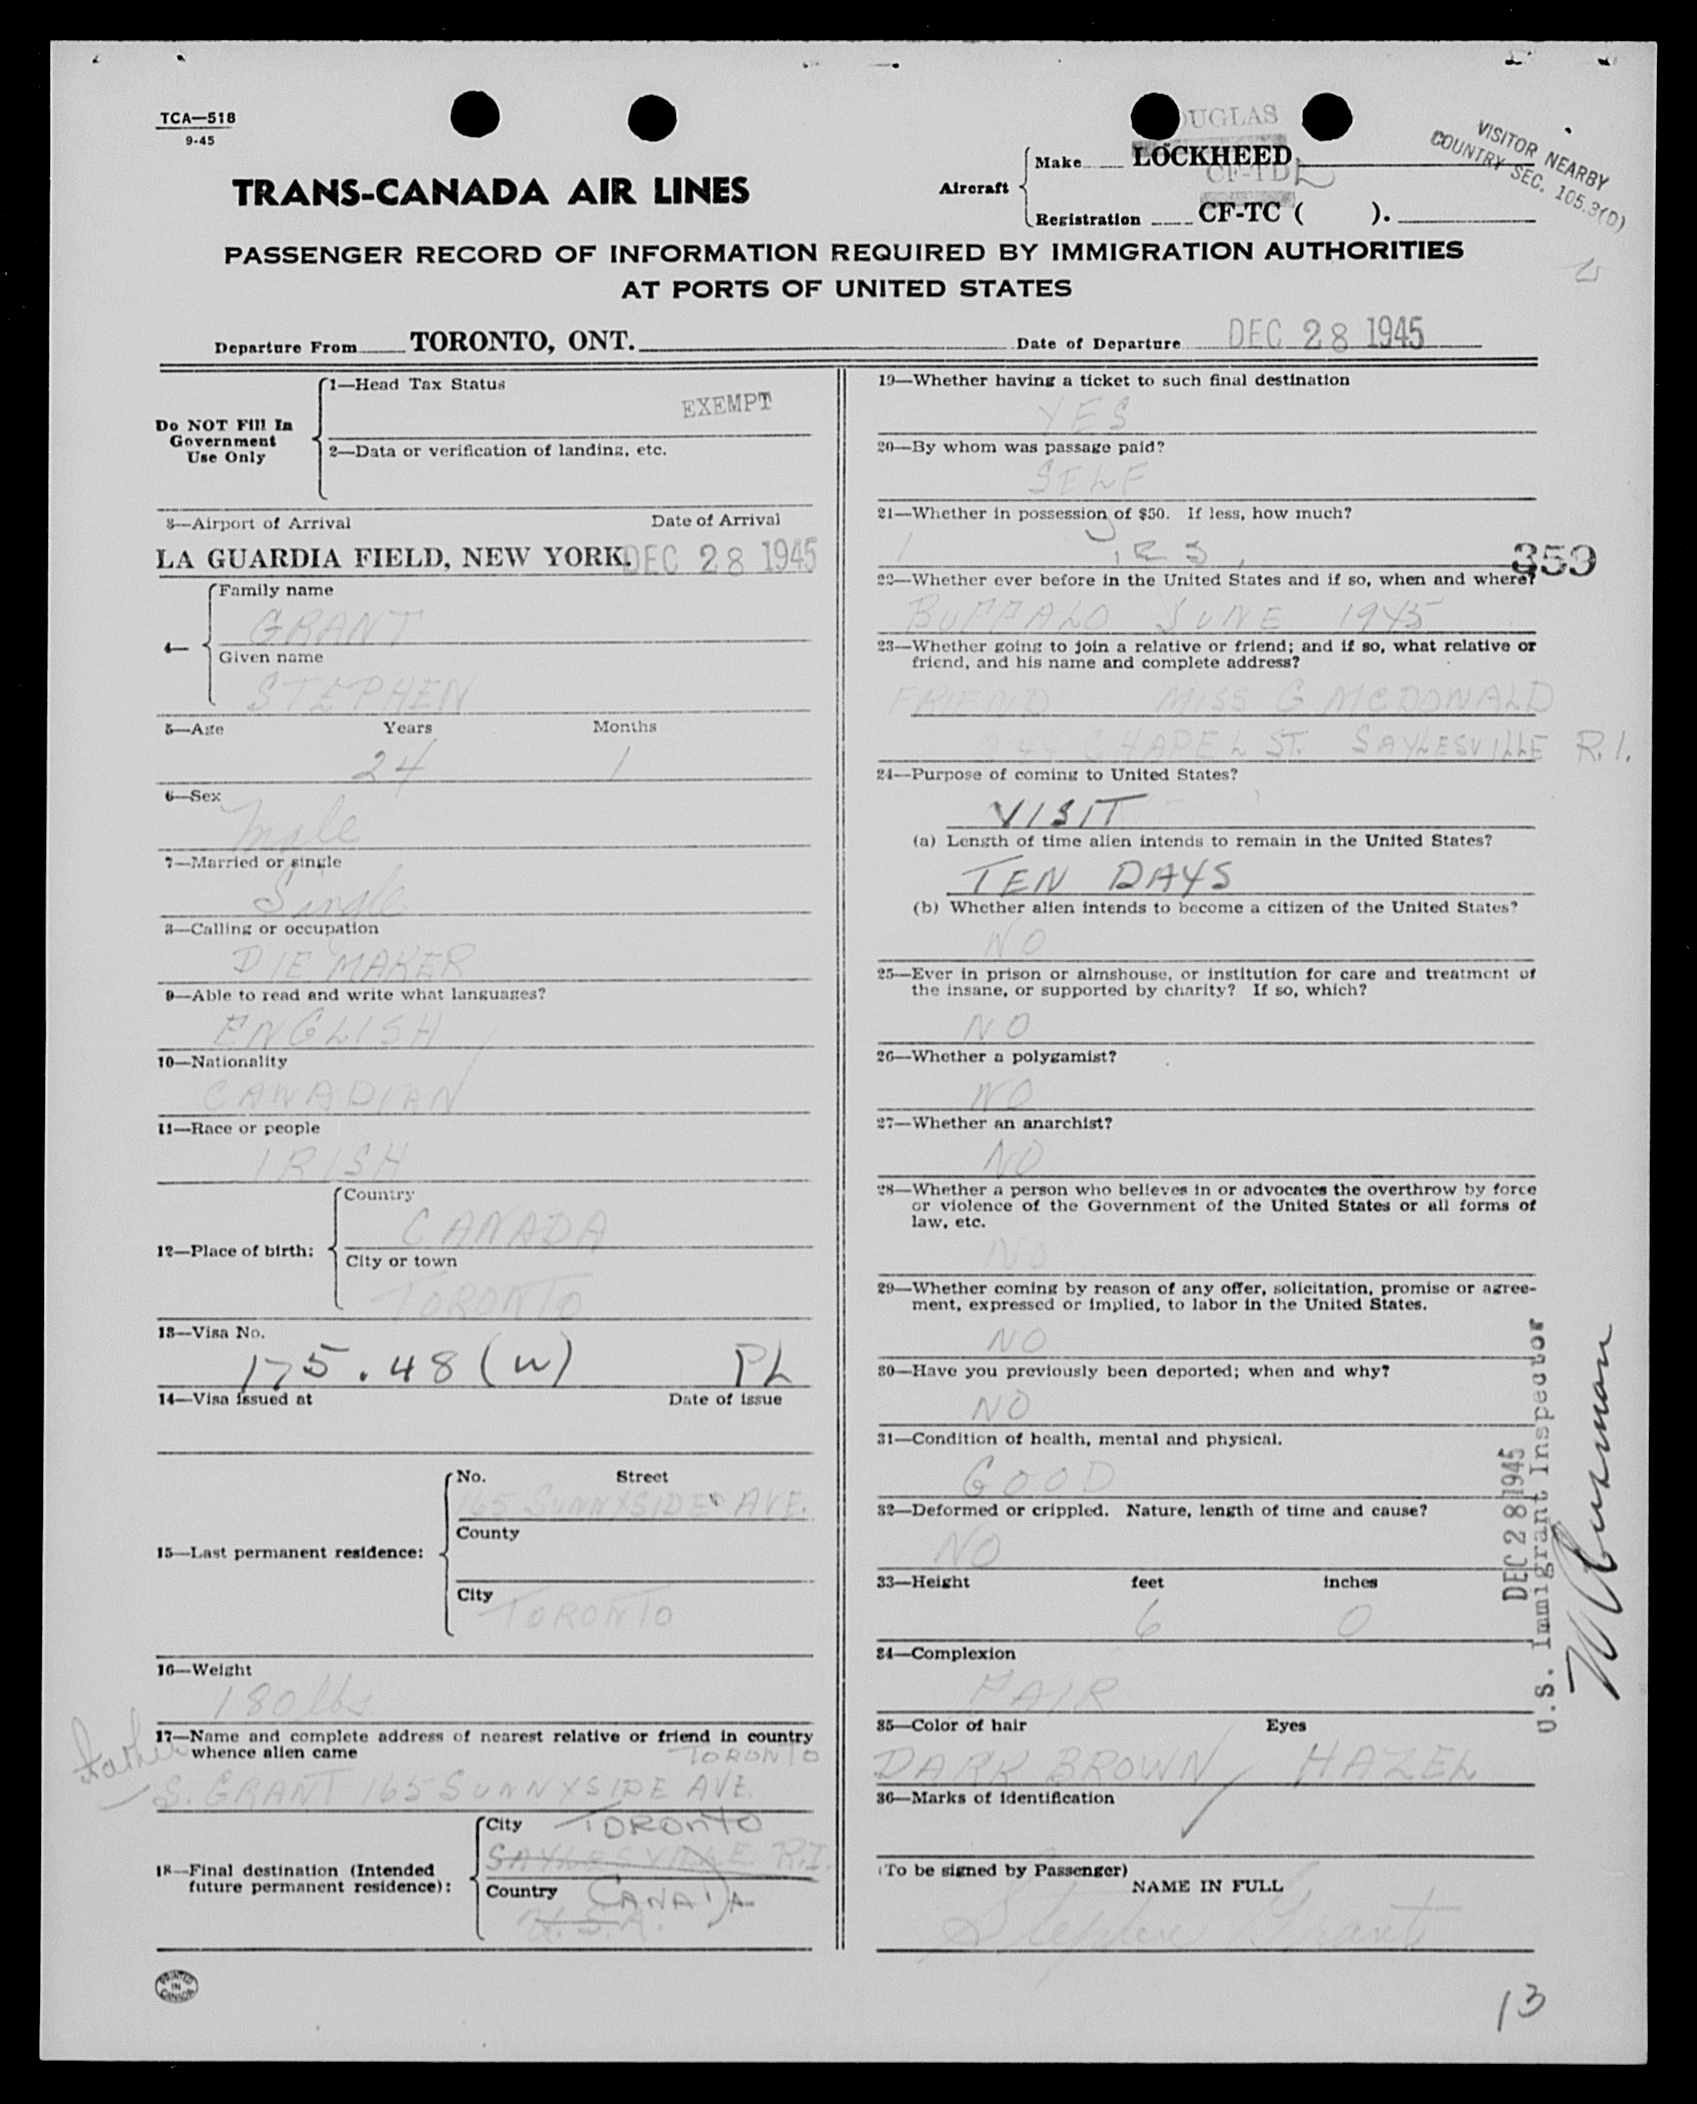 TCA—518
9-45
VISITOR NEARBY
COUNTRY SEC. 105.3(D)
DOUGLAS
TRANS-CANADA AIR LINES
Aircraft
Make LOCKHEED
CF-TD
Registration CF-TC ( ).
PASSENGER RECORD OF INFORMATION REQUIRED BY IMMIGRATION AUTHORITIES
AT PORTS OF UNITED STATES
Departure From TORONTO, ONT. Date of Departure DEC 28 1945
Do NOT Fill In
Government
Use Only
1—Head Tax Status
EXEMPT
2—Data or verification of landing, etc.
3—Airport of Arrival Date of Arrival
LA GUARDIA FIELD, NEW YORK. DEC 28 1945
4—
Family name
GRANT
Given name
STEPHEN
5—Age Years Months
24 1
6—Sex
Male
7—Married or single
Single
8—Calling or occupation
DIE MAKER
9—Able to read and write what languages?
ENGLISH
10—Nationality
CANADIAN
11—Race or people
IRISH
12—Place of birth:
Country
CANADA
City or town
TORONTO
13—Visa No.
175.48 (w) PL
14—Visa issued at Date of issue
15—Last permanent residence:
No. Street
165 SUNNYSIDE AVE.
County
City
TORONTO
16—Weight
180 lbs
17—Name and complete address of nearest relative or friend in country
whence alien came
TORONTO
Father
S. GRANT 165 SUNNYSIDE AVE.
18—Final destination (Intended
future permanent residence):
City TORONTO
SAYLESVILLE R.I.
Country CANADA
U.S.A.
PRINTED
IN
CANADA
19—Whether having a ticket to such final destination
YES
20—By whom was passage paid?
SELF
21—Whether in possession of $50. If less, how much?
YES
359
22—Whether ever before in the United States and if so, when and where?
BUFFALO JUNE 1945
23—Whether going to join a relative or friend; and if so, what relative or
friend, and his name and complete address?
FRIEND MISS G MCDONALD
CHAPEL ST. SAYLESVILLE R.I.
24—Purpose of coming to United States?
VISIT
(a) Length of time alien intends to remain in the United States?
TEN DAYS
(b) Whether alien intends to become a citizen of the United States?
NO
25—Ever in prison or almshouse, or institution for care and treatment of
the insane, or supported by charity? If so, which?
NO
26—Whether a polygamist?
NO
27—Whether an anarchist?
NO
28—Whether a person who believes in or advocates the overthrow by force
or violence of the Government of the United States or all forms of
law, etc.
NO
29—Whether coming by reason of any offer, solicitation, promise or agree-
ment, expressed or implied, to labor in the United States.
NO
30—Have you previously been deported; when and why?
NO
31—Condition of health, mental and physical.
GOOD
32—Deformed or crippled. Nature, length of time and cause?
NO
33—Height feet inches
6 0
34—Complexion
FAIR
35—Color of hair Eyes
DARK BROWN HAZEL
36—Marks of identification
(To be signed by Passenger)
NAME IN FULL
Stephen Grant
DEC 28 1945
U.S. Immigrant Inspector
13